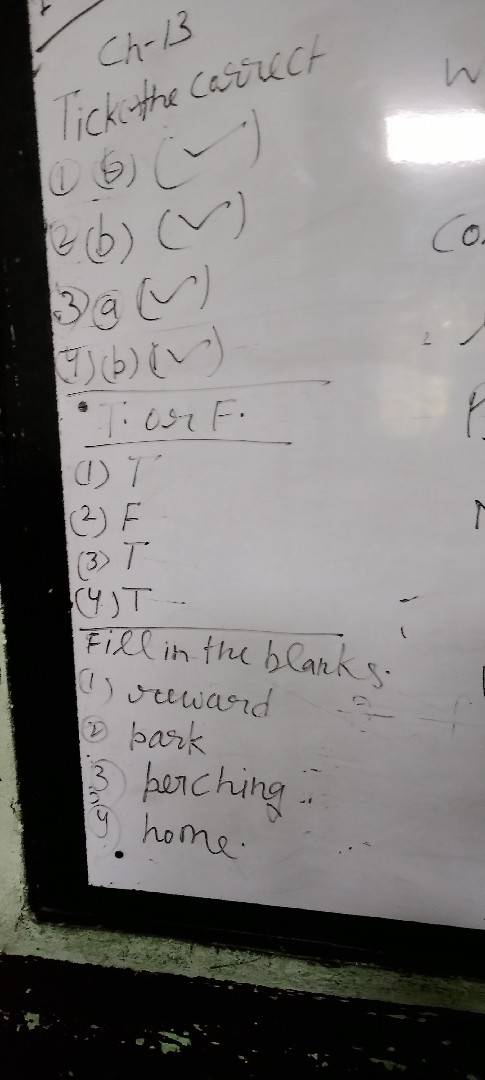 Ch-13
Tick the correct
① (b) (✓)
② (b) (✓)
③ ⓐ (✓)
(4) (b) (✓)
• T. or F.
(1) T
(2) F
(3) T
(4) T
Fill in the blanks.
(1) reward
② park
③ perching
④ home.
W
Co